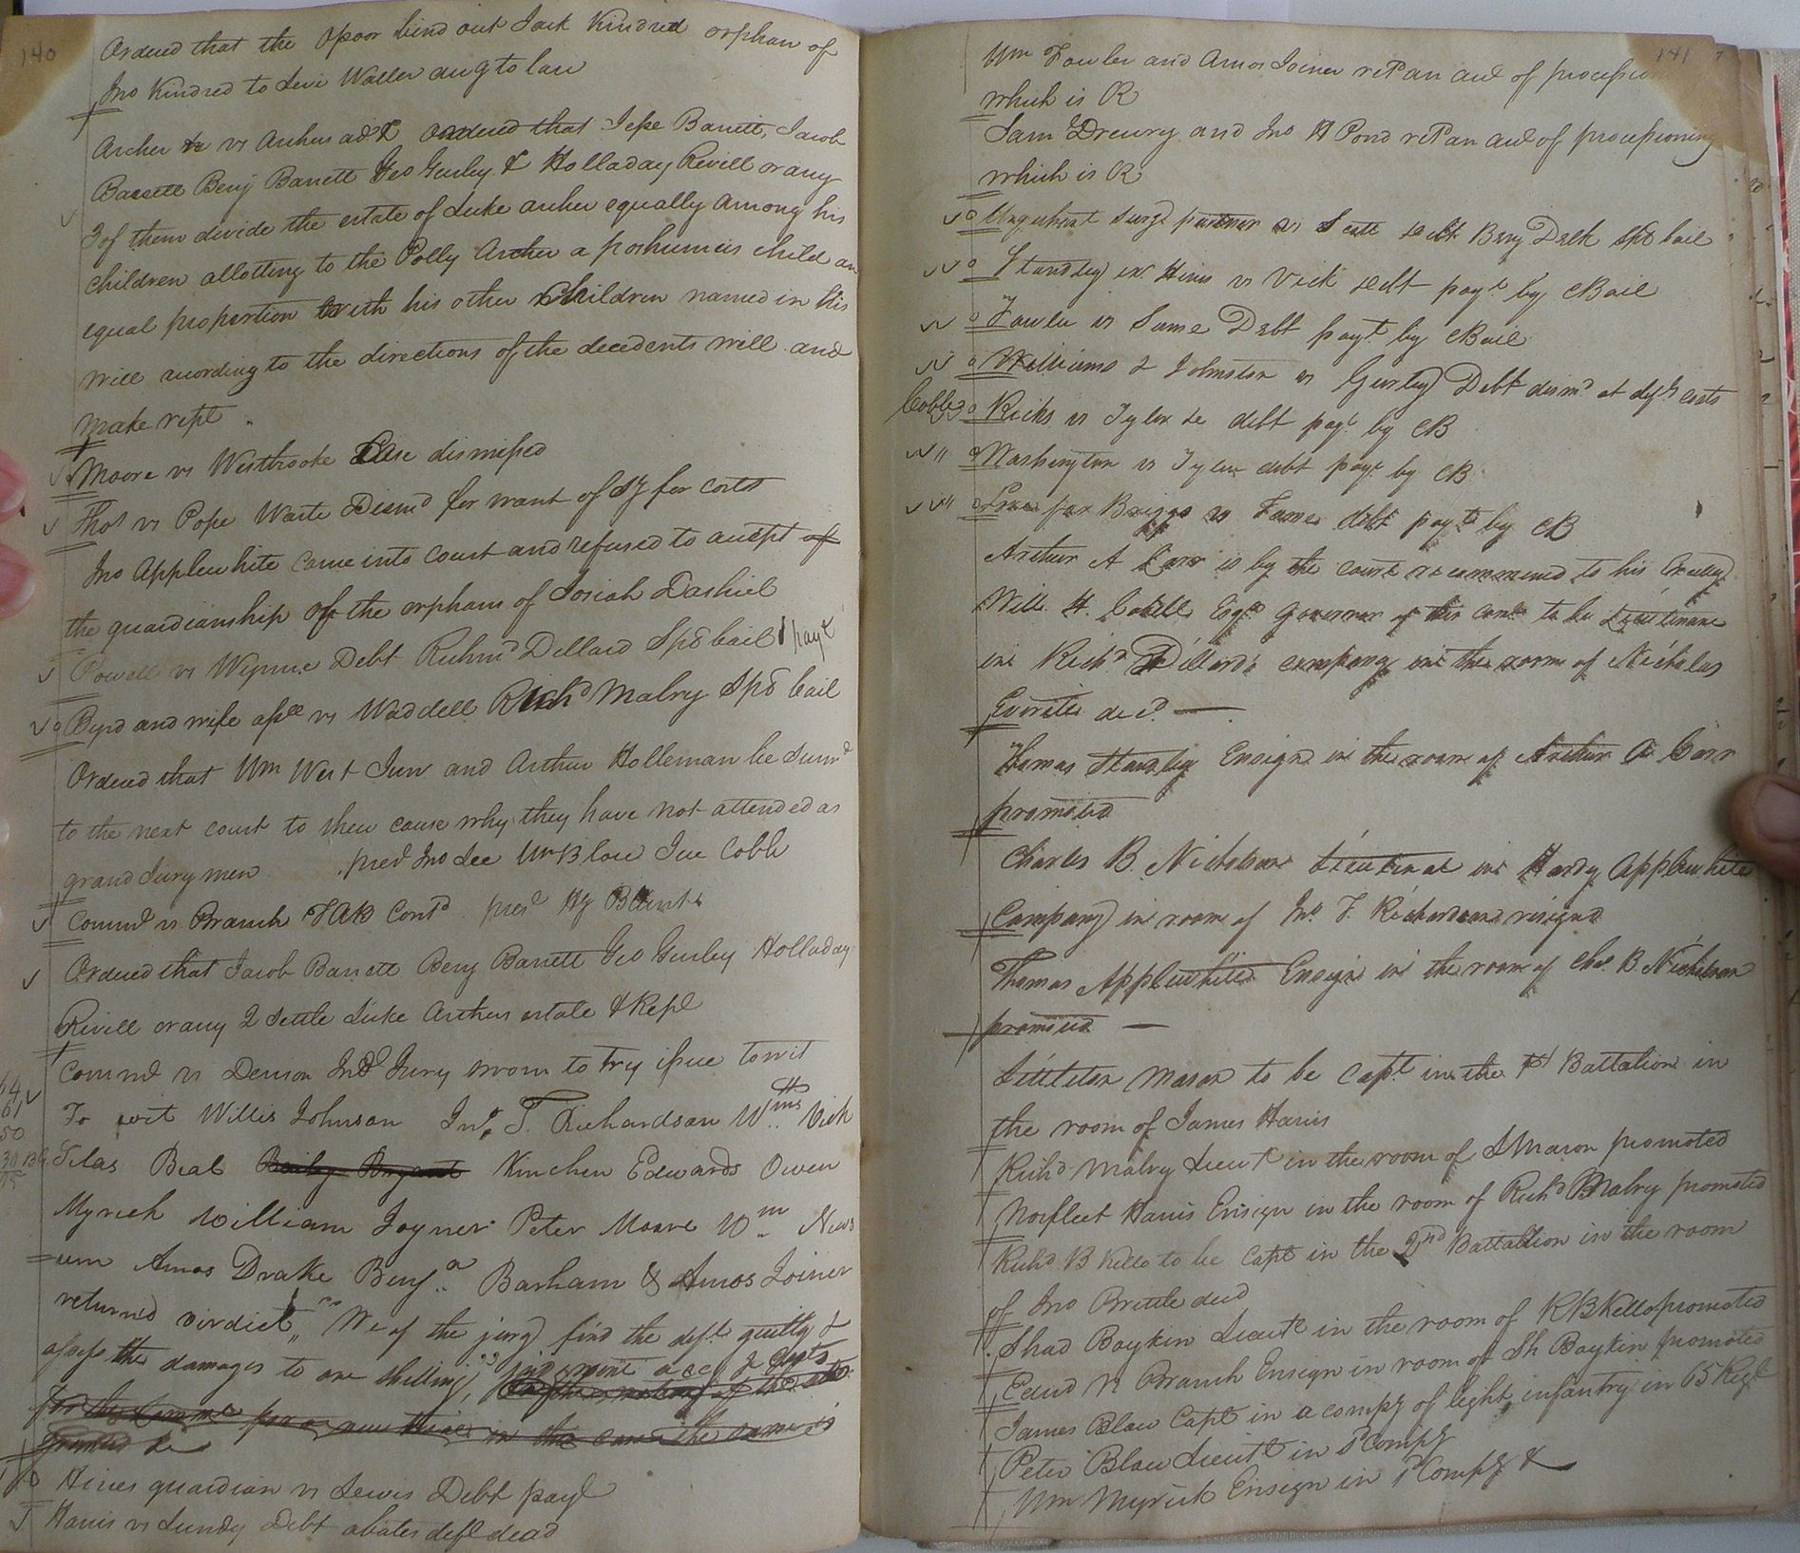 140
Ordered that the Opoor bind out Jack Kindred orphan of
Jno Kindred to Levi Waller aug to law
Archer &c vs Archers adx Ordered that Jesse Barrett, Jacob
Barrett Benj Barrett Geo Gurley & Holladay Revill or any
3 of them divide the estate of Luke archer equally among his
children allotting to the Polly Archer a poshumus child an
equal proportion with his other Children named in his
will acording to the directions of the decedents will and
make rept
Moore vs Westbrooke Case dismissed
Thos vs Pope Waste Dismd for want of Sy for costs
Jno Applewhite came into court and refused to accept of
the guardianship of the orphans of Josiah Dashiel
Powell vs Wynne Debt Richmd Dillard Spd bail payt
Byrd and wife apee vs Waddell Richd Mabry Spd bail
Ordered that Wm West Junr and Arthur Holleman be Sumd
to the next court to shew cause why they have not attended as
grand Jury men presd Jno Lee Wm Blow Jur Cobb
Commd vs Branch TAB Contd presd Hy Blunt
Ordered that Jacob Barrett Benj Barrett Geo Gurley Holladay
Revill or any 2 settle Luke Archers estate & Repl
Commd vs Denson Ind Jury sworn to try issue towit
To wit Willis Johnson Jno. T. Richardson Wms Vick
Silas Beal Kinchen Edwards Owen
Myrick William Joyner Peter Moore Wm News
=um Amos Drake Benja Barham & Amos Joiner
returned virdict, "We of the jury find the deft guilty &
assess the damages to one shilling," judgment acc & costs
for the Comm for a new trial in the case the same is
granted &c
Hines guardian vs Lewis Debt payt
Harris vs Lundy Debt abates deft dead
141
Wm Fowler and Amos Joiner ret an act of procession
which is R
Sam Drewry and Jno H Pond ret an act of processioning
which is R
Urquhart Surg partner vs Scott debt Benj Delk Spd bail
Standley exr Hines vs Vick debt payt by CBail
Fowler vs Same Debt payt by CBail
Williams & Johnston vs Gurley Debt dismd at dfts costs
Cobbs Ricks vs Tyler &c debt payt by CB
Washington vs Tyler debt payt by CB
for Briggs vs Same debt payt by CB
Arthur A Carr is by the court recommend to his Excelly
Will. H. Cabell Esqr Governor of this comth to be Lieutinane
in Richd Dillard's company in the room of Nicholas
Everitts decd. —
Thomas Standley Ensign in the room of Arthur A Carr
promoted
Charles B. Nicholson Lieutinat in Hardy Applewhite
Company in room of Jno. T. Richardson resignd
Thomas Applewhite Ensign in the room of Chas. B. Nicholson
promoted —
Littleton Mason to be Capt in the 1st Battalion in
the room of James Harris
Richd Mabry Lieut in the room of L Mason promoted
Norfleet Harris Ensign in the room of Richd Mabry promoted
Richd B Kello to be Capt in the 2nd Battalion in the room
of Jno Brittle decd
Shad Boykin Lieut in the room of R B Kello promoted
Edwd N Branch Ensign in room of Sh Boykin promoted
James Blow Capt in a compy of light infantry in 65 Regt
Peter Blow Lieut in sd Compy
Wm Myrick Ensign in sd Compy &